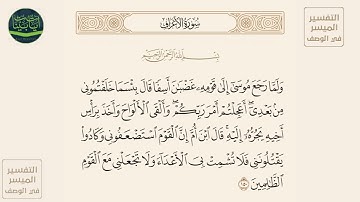 سُورَةُ الأَعْرَافِ
التفسير
الميسر
في الوصف
بِسْمِ اللَّهِ الرَّحْمَٰنِ الرَّحِيمِ
وَلَمَّا رَجَعَ مُوسَىٰٓ إِلَىٰ قَوْمِهِۦ غَضْبَٰنَ أَسِفًا قَالَ بِئْسَمَا خَلَفْتُمُونِى
مِنۢ بَعْدِىٓۖ أَعَجِلْتُمْ أَمْرَ رَبِّكُمْۖ وَأَلْقَى ٱلْأَلْوَاحَ وَأَخَذَ بِرَأْسِ
أَخِيهِ يَجُرُّهُۥٓ إِلَيْهِۚ قَالَ ٱبْنَ أُمَّ إِنَّ ٱلْقَوْمَ ٱسْتَضْعَفُونِى وَكَادُوا۟
يَقْتُلُونَنِى فَلَا تُشْمِتْ بِىَ ٱلْأَعْدَآءَ وَلَا تَجْعَلْنِى مَعَ ٱلْقَوْمِ
ٱلظَّٰلِمِينَ ١٥٠
التفسير
الميسر
في الوصف